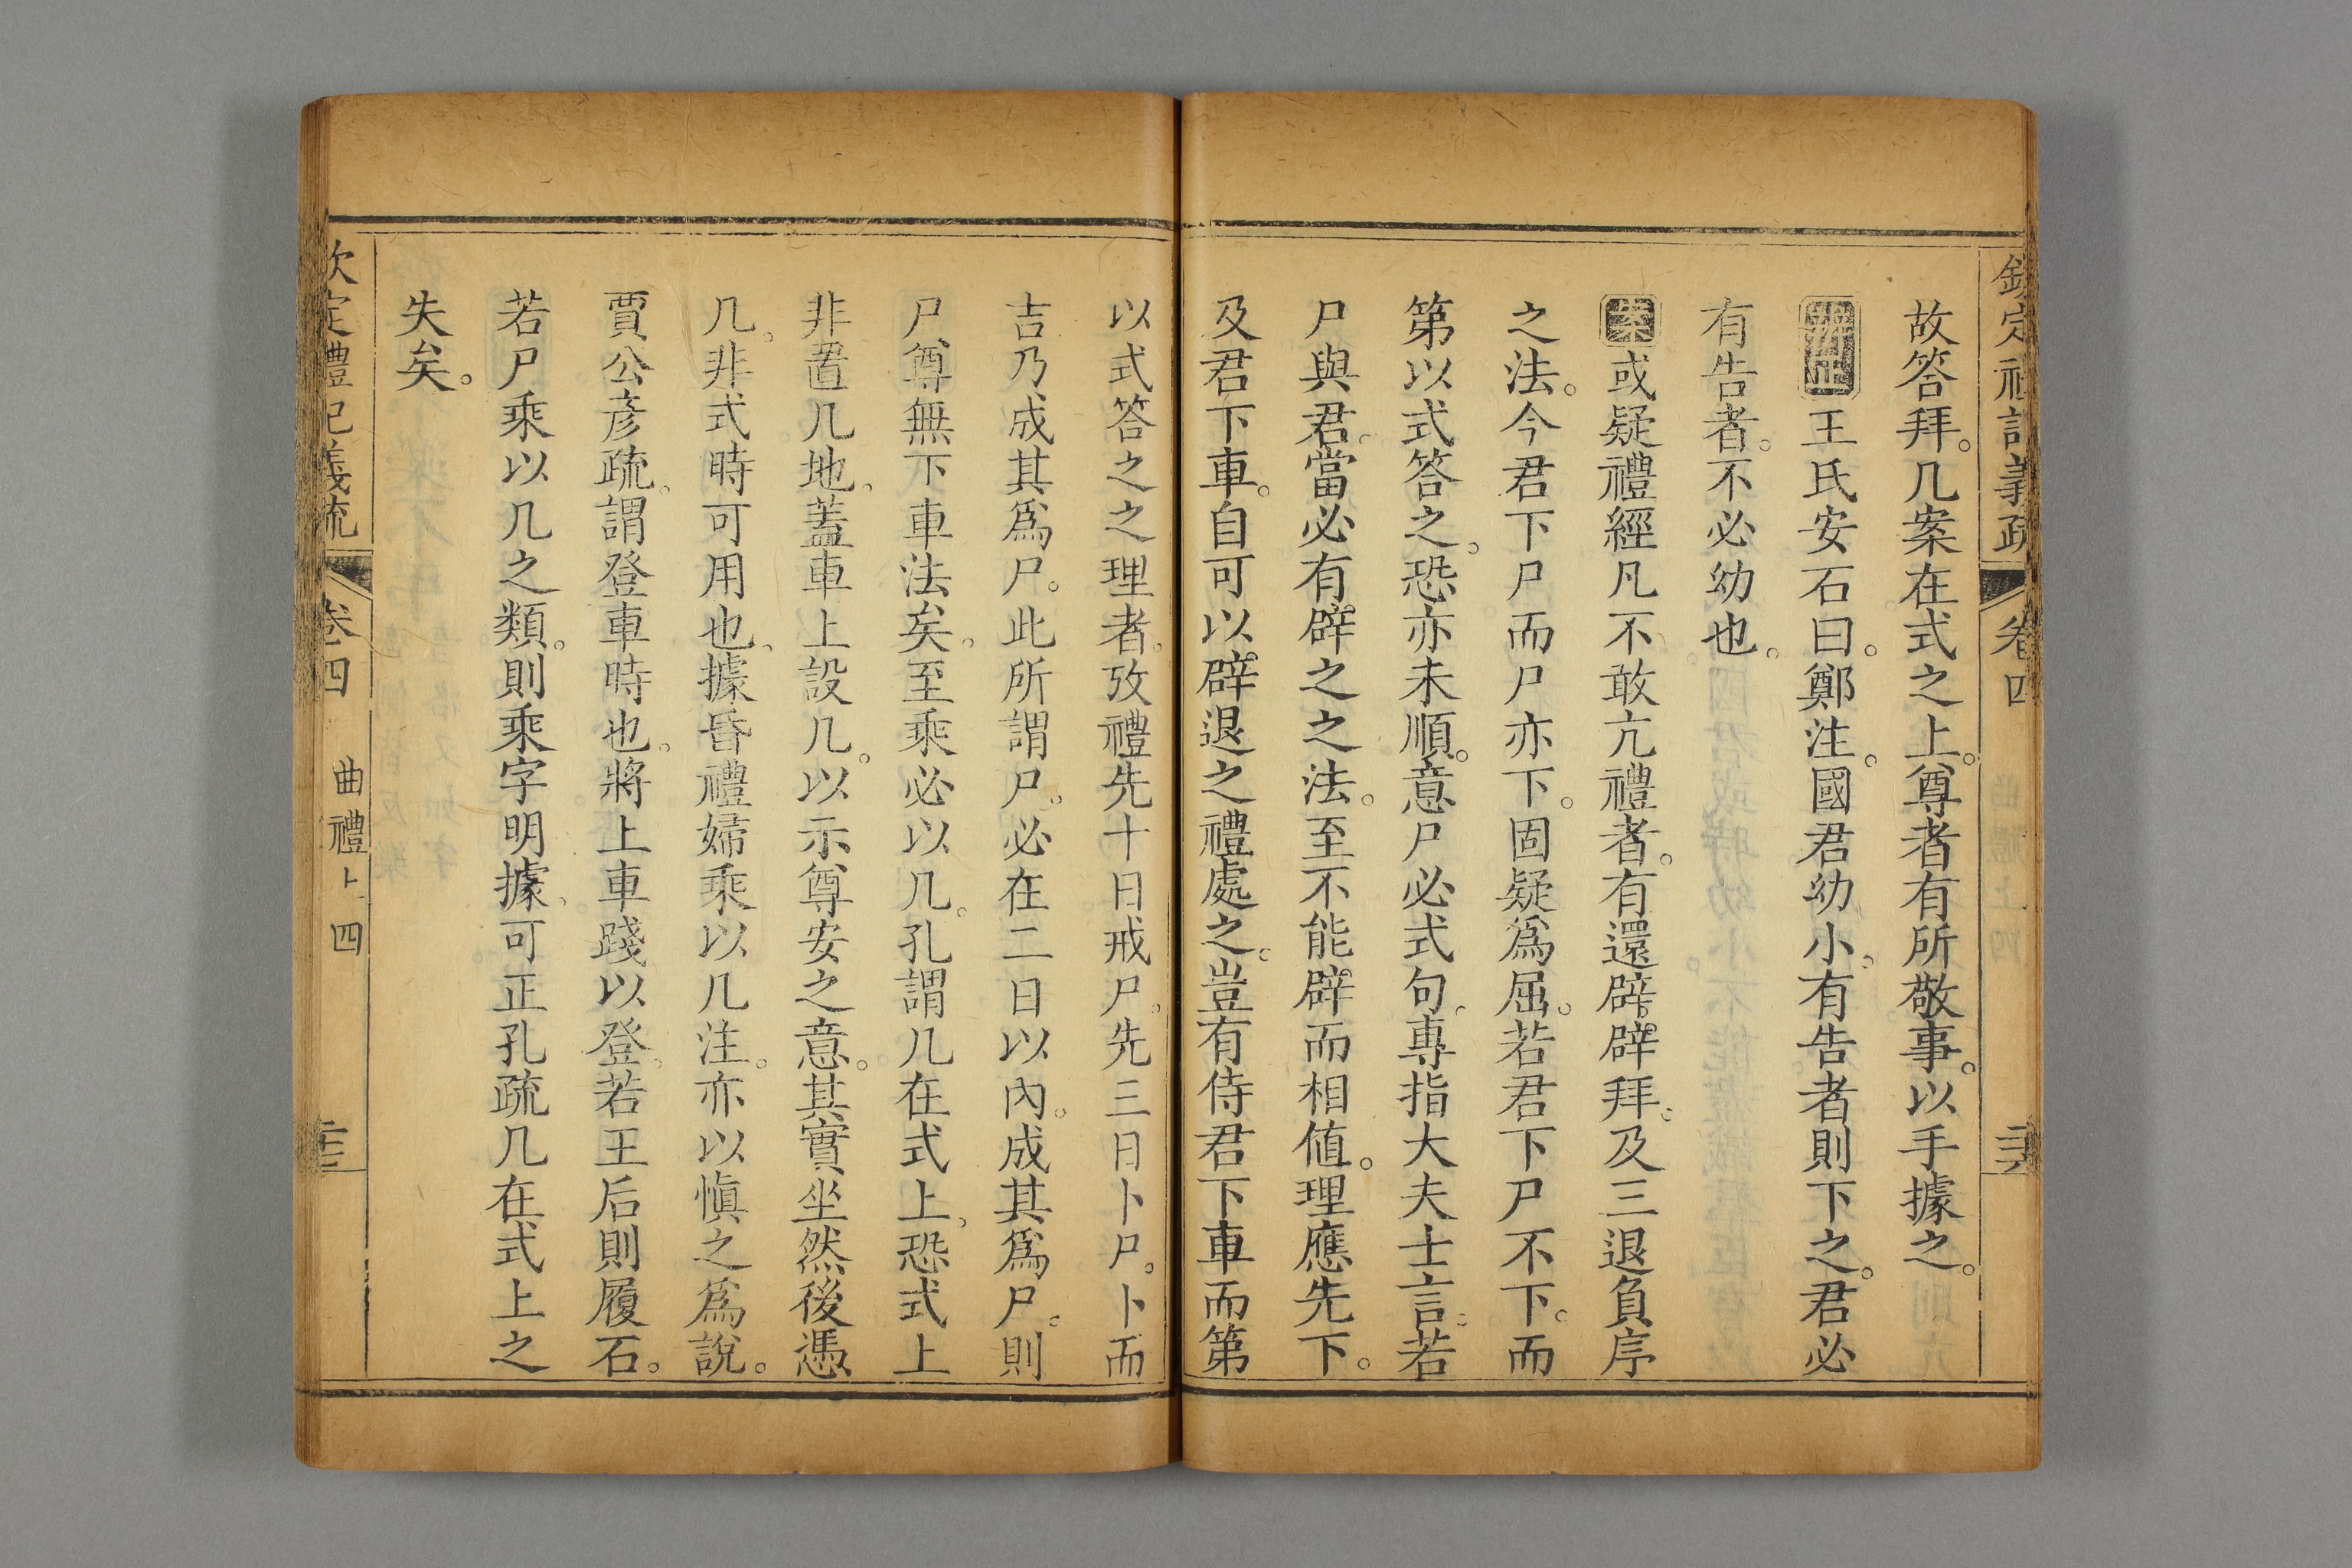 欽定禮記義疏 卷四
故答拜。几案在式之上。尊者有所敬事。以手據之。
辨正 王氏安石曰。鄭注。國君幼小。有告者則下之。君必
有告者。不必幼也。
案 或疑禮經凡不敢亢禮者。有還辟辟拜。及三退負序
之法。今君下尸而尸亦下。固疑爲屈。若君下尸不下。而
第以式答之。恐亦未順。意尸必式句。專指大夫士言。若
尸與君。當必有辟之之法。至不能辟而相値。理應先下。
及君下車。自可以辟退之禮處之。豈有侍君下車而第
以式答之之理者。攷禮先十日戒尸。先三日卜尸。卜而
吉乃成其爲尸。此所謂尸。必在二日以內。成其爲尸。則
尸尊無下車法矣。至乘必以几。孔謂几在式上。恐式上
非置几地。蓋車上設几。以示尊安之意。其實坐然後憑
几。非式時可用也。據昏禮婦乘以几注。亦以愼之爲說。
賈公彥疏。謂登車時也。將上車踐以登。若王后則履石。
若尸乘以几之類。則乘字明據。可正孔疏几在式上之
失矣。
欽定禮記義疏 卷四 曲禮上四